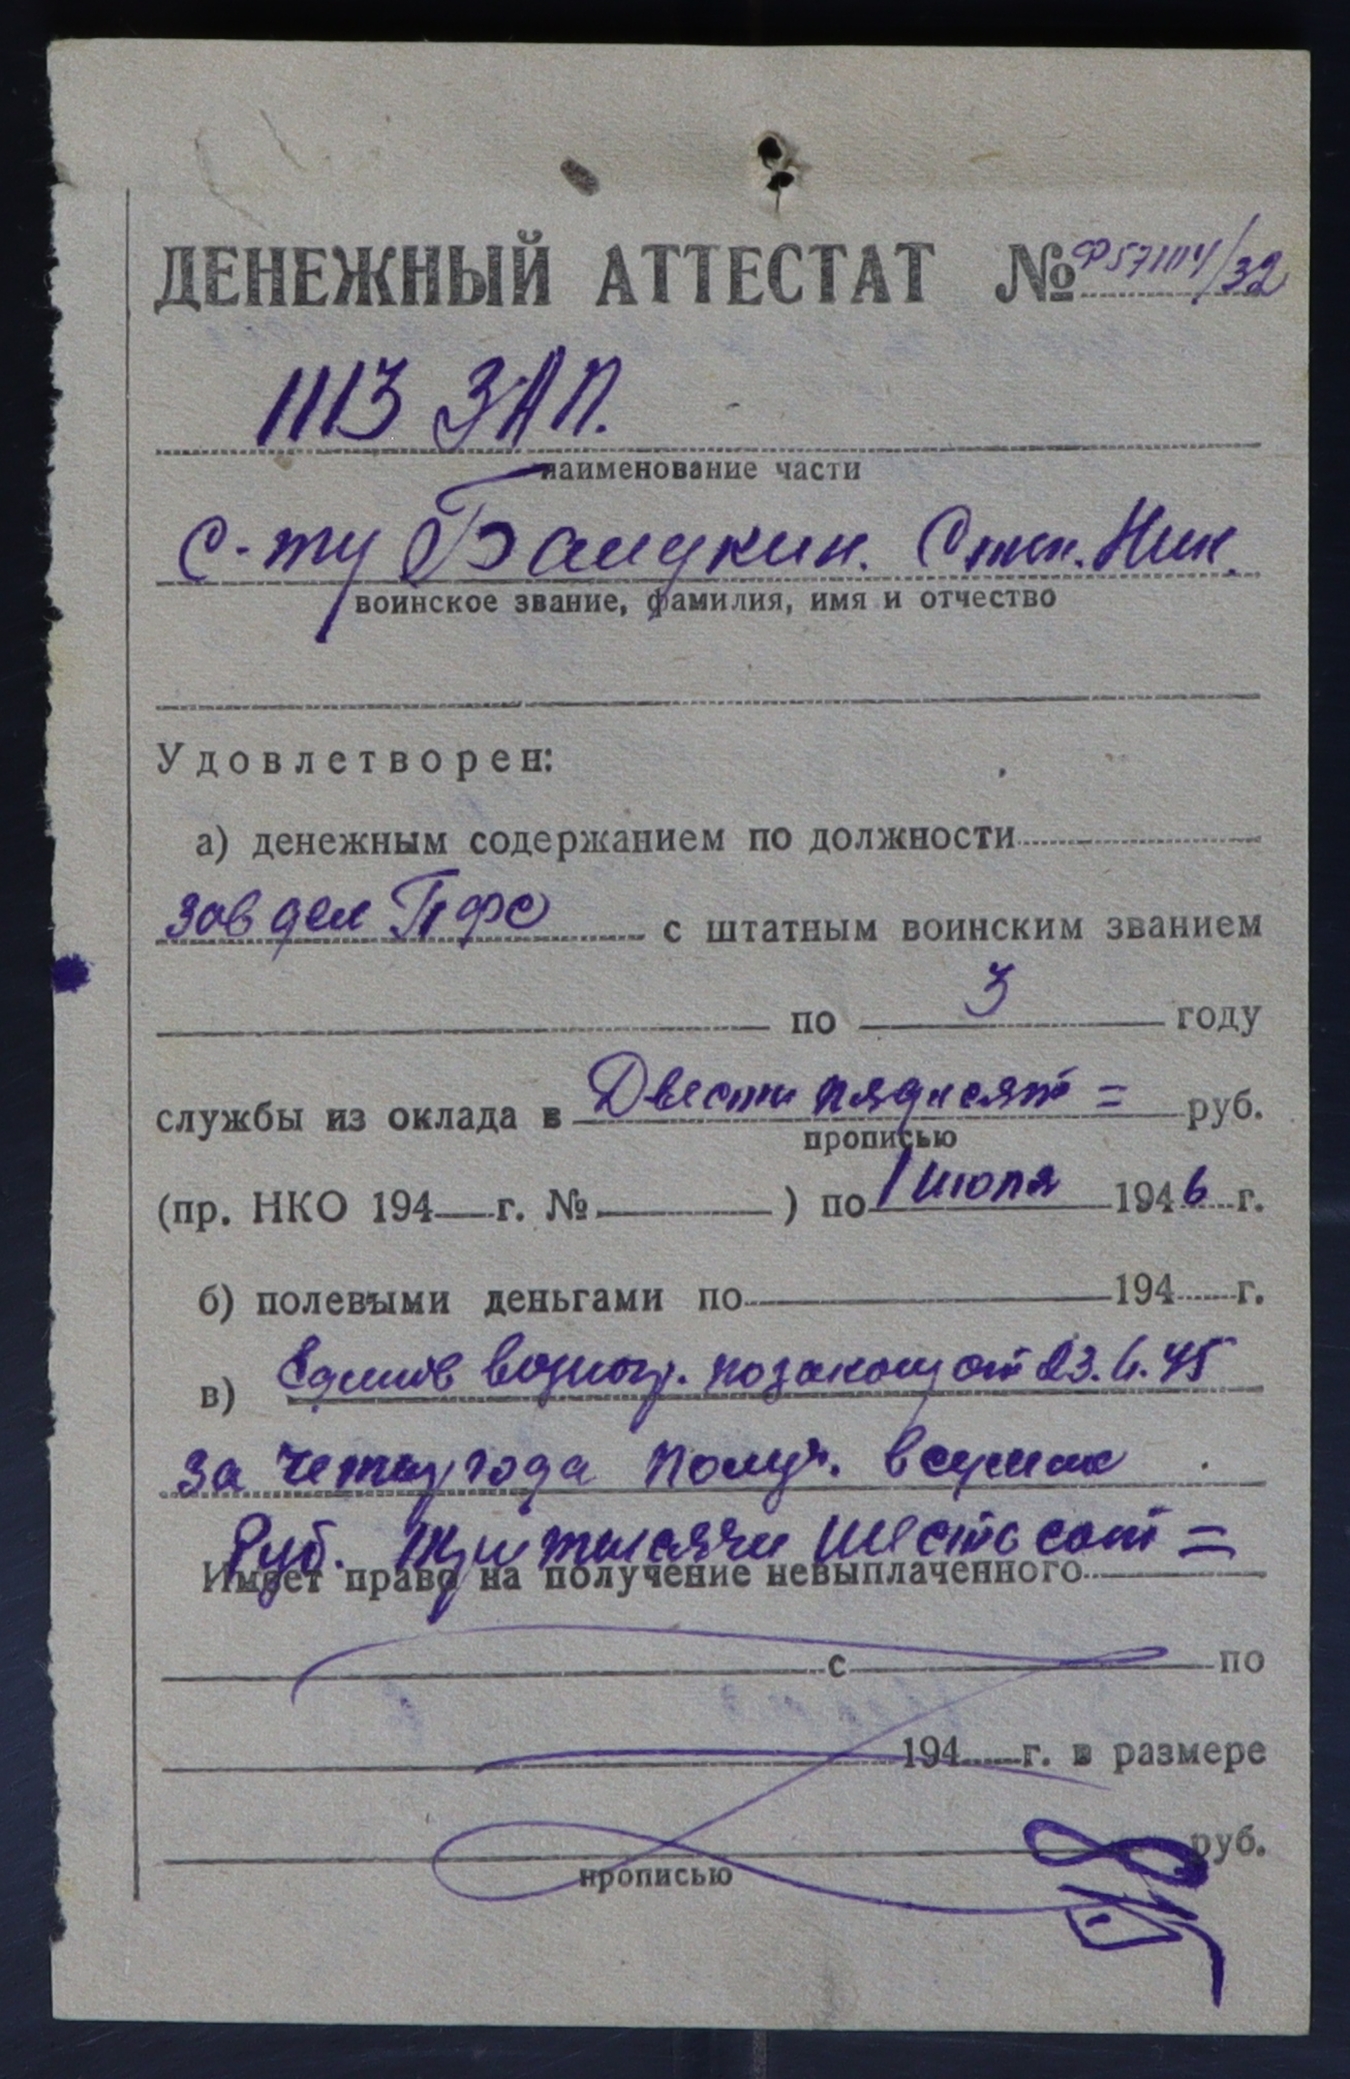 ДЕНЕЖНЫЙ АТТЕСТАТ № Ф571114/32
1113 ЗАП.
наименование части
с-ту Степ. Ник.
воинское звание, фамилия, имя и отчество
Удовлетворен:
а) денежным содержанием по должности
зав дел ПФС с штатным воинским званием
по 3 году
службы из оклада в Двести пядисят = руб.
прописью
(пр. НКО 194 г. № ) по 1 июля 1946 г.
б) полевыми деньгами по 194 г.
в) Единов возногр. по закону от 23.6.45
за четыр года получ. в сумме
Руб. Три тысячи шестьсот =
Имеет право на получение невыплаченного
с по
194 г. в размере
руб.
прописью